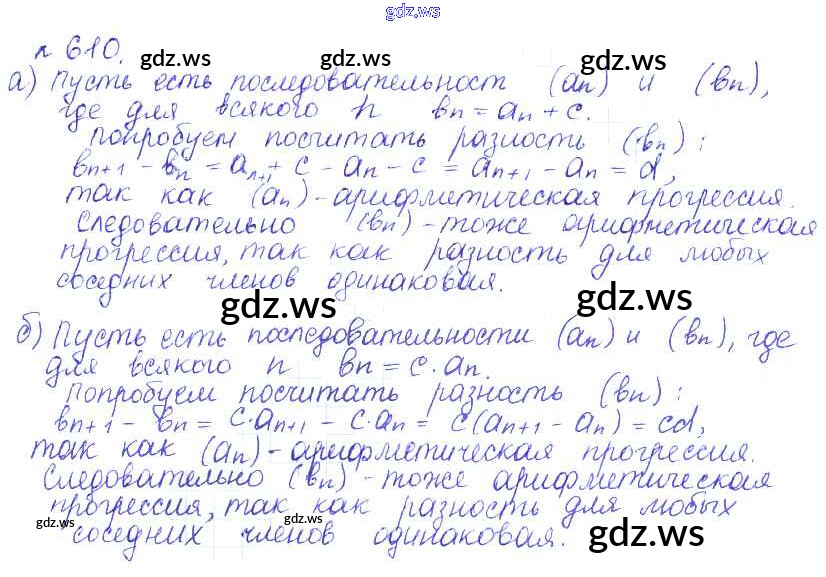 gdz.ws
n 610.
gdz.ws gdz.ws
а) Пусть есть последовательност (an) и (bn),
где для всякого n bn = an + c.
Попробуем посчитать разность (bn):
bn+1 - bn = an+1 + c - an - c = an+1 - an = d,
так как (an) - арифметическая прогрессия.
Следовательно (bn) - тоже арифметическая
прогрессия, так как разность для любых
соседних членов одинаковая.
gdz.ws gdz.ws
б) Пусть есть последовательности (an) и (bn), где
для всякого n bn = c·an.
Попробуем посчитать разность (bn):
bn+1 - bn = c·an+1 - c·an = c(an+1 - an) = cd,
так как (an) - арифметическая прогрессия.
Следовательно (bn) - тоже арифметическая
прогрессия, так как разность для любых
соседних членов одинаковая.
gdz.ws gdz.ws gdz.ws